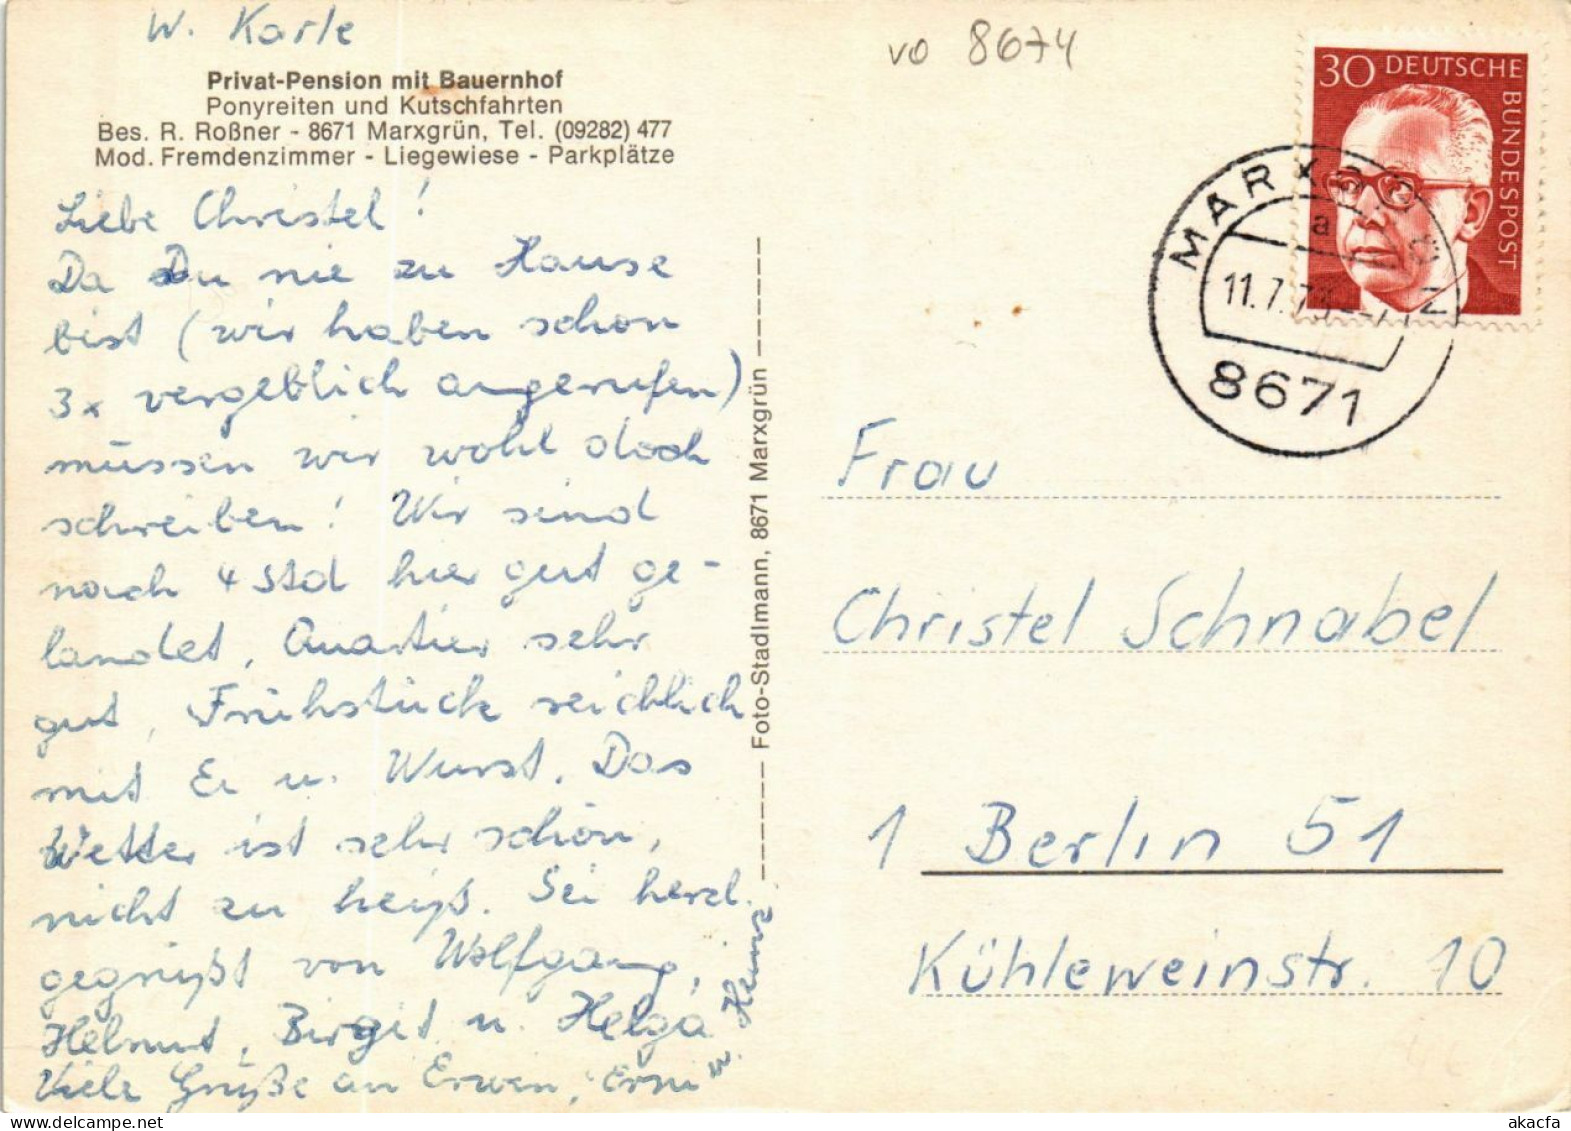 W. Karle
Privat-Pension mit Bauernhof
Ponyreiten und Kutschfahrten
Bes. R. Roßner - 8671 Marxgrün, Tel. (09282) 477
Mod. Fremdenzimmer - Liegewiese - Parkplätze
Liebe Christel!
Da Du nie zu Hause
bist (wir haben schon
3x vergeblich angerufen)
müssen wir wohl doch
schreiben! Wir sind
nach 4 Std hier gut ge-
landet, Quartier sehr
gut, Frühstück reichlich
mit Ei u. Wurst. Das
Wetter ist sehr schön,
nicht zu heiß. Sei herzl.
gegrüßt von Wolfgang,
Helmut, Birgit u. Helga
Viele Grüße an Erwen, Erni
u. Heinz
Foto-Stadlmann, 8671 Marxgrün
vo 8674
30 DEUTSCHE
BUNDESPOST
MARXGRÜN
a
11.7.7
8671
Frau
Christel Schnabel
1 Berlin 51
Kühleweinstr. 10
akacfa